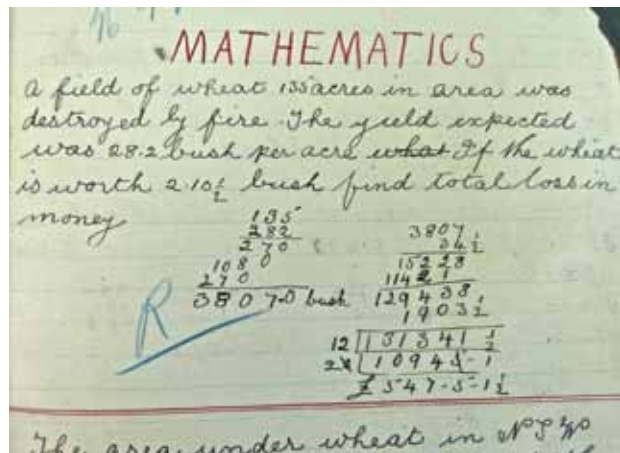 MATHEMATICS
A field of wheat 135 acres in area was
destroyed by fire. The yield expected
was 28.2 bush per acre what If the wheat
is worth 2.10½ bush find total loss in
money
135
282
270
1080
270
3807.0 bush
3807
34½
15228
11421
129438
1903½
12 131341 ½
20 10945-1
£ 547-5-1½
R
The area under wheat in N S W